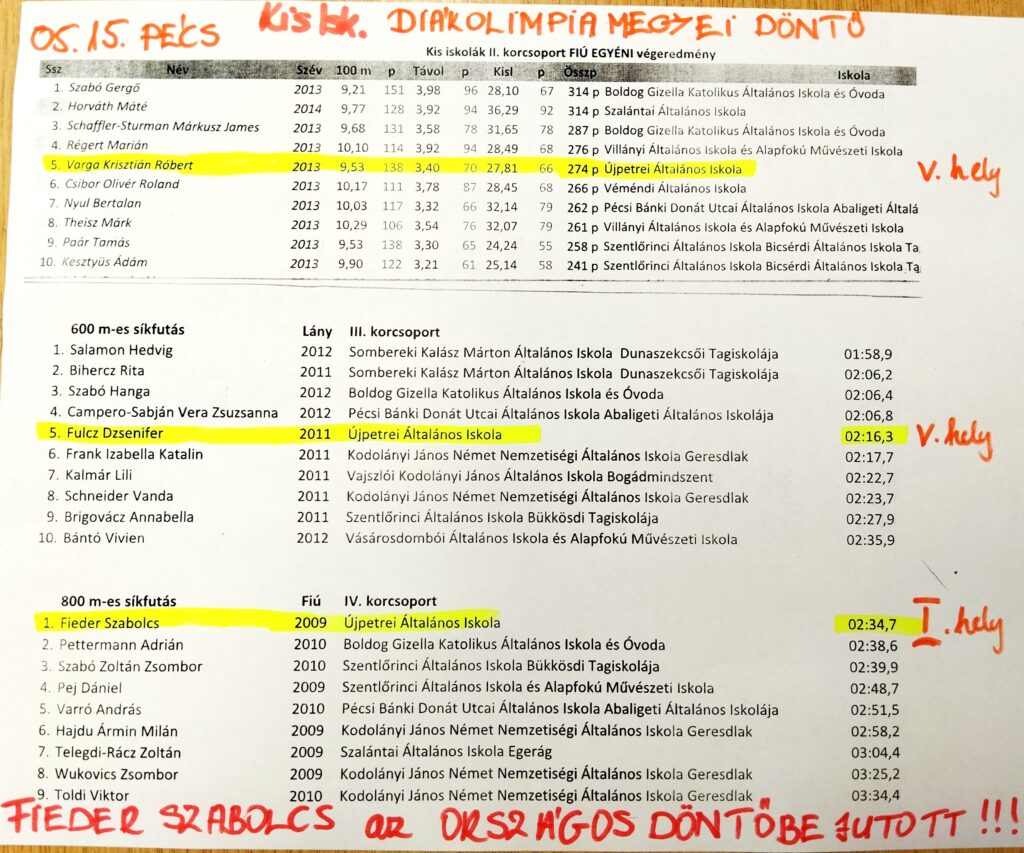 05.15. PÉCS Kis Isk. DIÁKOLIMPIA MEGYEI DÖNTŐ
Kis iskolák II. korcsoport FIÚ EGYÉNI végeredmény
Ssz Név Szév 100 m p Távol p Kisl p Összp Iskola
1. Szabó Gergő 2013 9,21 151 3,98 96 28,10 67 314 p Boldog Gizella Katolikus Általános Iskola és Óvoda
2. Horváth Máté 2014 9,77 128 3,92 94 36,29 92 314 p Szalántai Általános Iskola
3. Schaffler-Sturman Márkusz James 2013 9,68 131 3,58 78 31,65 78 287 p Boldog Gizella Katolikus Általános Iskola és Óvoda
4. Régert Marián 2013 10,10 114 3,92 94 28,49 68 276 p Villányi Általános Iskola és Alapfokú Művészeti Iskola
5. Varga Krisztián Róbert 2013 9,53 138 3,40 70 27,81 66 274 p Újpetrei Általános Iskola V. hely
6. Csibor Olivér Roland 2013 10,17 111 3,78 87 28,45 68 266 p Véméndi Általános Iskola
7. Nyul Bertalan 2013 10,03 117 3,32 66 32,14 79 262 p Pécsi Bánki Donát Utcai Általános Iskola Abaligeti Általá
8. Theisz Márk 2013 10,29 106 3,54 76 32,07 79 261 p Villányi Általános Iskola és Alapfokú Művészeti Iskola
9. Paár Tamás 2013 9,53 138 3,30 65 24,24 55 258 p Szentlőrinci Általános Iskola Bicsérdi Általános Iskola Ta
10. Kesztyüs Ádám 2013 9,90 122 3,21 61 25,14 58 241 p Szentlőrinci Általános Iskola Bicsérdi Általános Iskola Tag
600 m-es síkfutás Lány III. korcsoport
1. Salamon Hedvig 2012 Sombereki Kalász Márton Általános Iskola Dunaszekcsői Tagiskolája 01:58,9
2. Bihercz Rita 2011 Sombereki Kalász Márton Általános Iskola Dunaszekcsői Tagiskolája 02:06,2
3. Szabó Hanga 2012 Boldog Gizella Katolikus Általános Iskola és Óvoda 02:06,4
4. Campero-Sabján Vera Zsuzsanna 2012 Pécsi Bánki Donát Utcai Általános Iskola Abaligeti Általános Iskolája 02:06,8
5. Fulcz Dzsenifer 2011 Újpetrei Általános Iskola 02:16,3 V. hely
6. Frank Izabella Katalin 2011 Kodolányi János Német Nemzetiségi Általános Iskola Geresdlak 02:17,7
7. Kalmár Lili 2011 Vajszlói Kodolányi János Általános Iskola Bogádmindszent 02:22,7
8. Schneider Vanda 2011 Kodolányi János Német Nemzetiségi Általános Iskola Geresdlak 02:23,7
9. Brigovácz Annabella 2011 Szentlőrinci Általános Iskola Bükkösdi Tagiskolája 02:27,9
10. Bántó Vivien 2012 Vásárosdombói Általános Iskola és Alapfokú Művészeti Iskola 02:35,9
800 m-es síkfutás Fiú IV. korcsoport
1. Fieder Szabolcs 2009 Újpetrei Általános Iskola 02:34,7 I. hely
2. Pettermann Adrián 2010 Boldog Gizella Katolikus Általános Iskola és Óvoda 02:38,6
3. Szabó Zoltán Zsombor 2010 Szentlőrinci Általános Iskola Bükkösdi Tagiskolája 02:39,9
4. Pej Dániel 2009 Szentlőrinci Általános Iskola és Alapfokú Művészeti Iskola 02:48,7
5. Varró András 2010 Pécsi Bánki Donát Utcai Általános Iskola Abaligeti Általános Iskolája 02:51,5
6. Hajdu Ármin Milán 2009 Kodolányi János Német Nemzetiségi Általános Iskola Geresdlak 02:58,2
7. Telegdi-Rácz Zoltán 2009 Szalántai Általános Iskola Egerág 03:04,4
8. Wukovics Zsombor 2009 Kodolányi János Német Nemzetiségi Általános Iskola Geresdlak 03:25,2
9. Toldi Viktor 2010 Kodolányi János Német Nemzetiségi Általános Iskola Geresdlak 03:34,4
FIEDER SZABOLCS az ORSZÁGOS DÖNTŐBE JUTOTT !!!